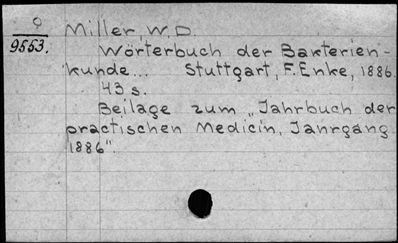 Q
9553.
Miller, W. D.
Wörterbuch der Bakterien-
kunde... Stuttgart, F. Enke, 1886.
43 s.
Beilage zum „Jahrbuch der
practischen Medicin, Jahrgang
1886".